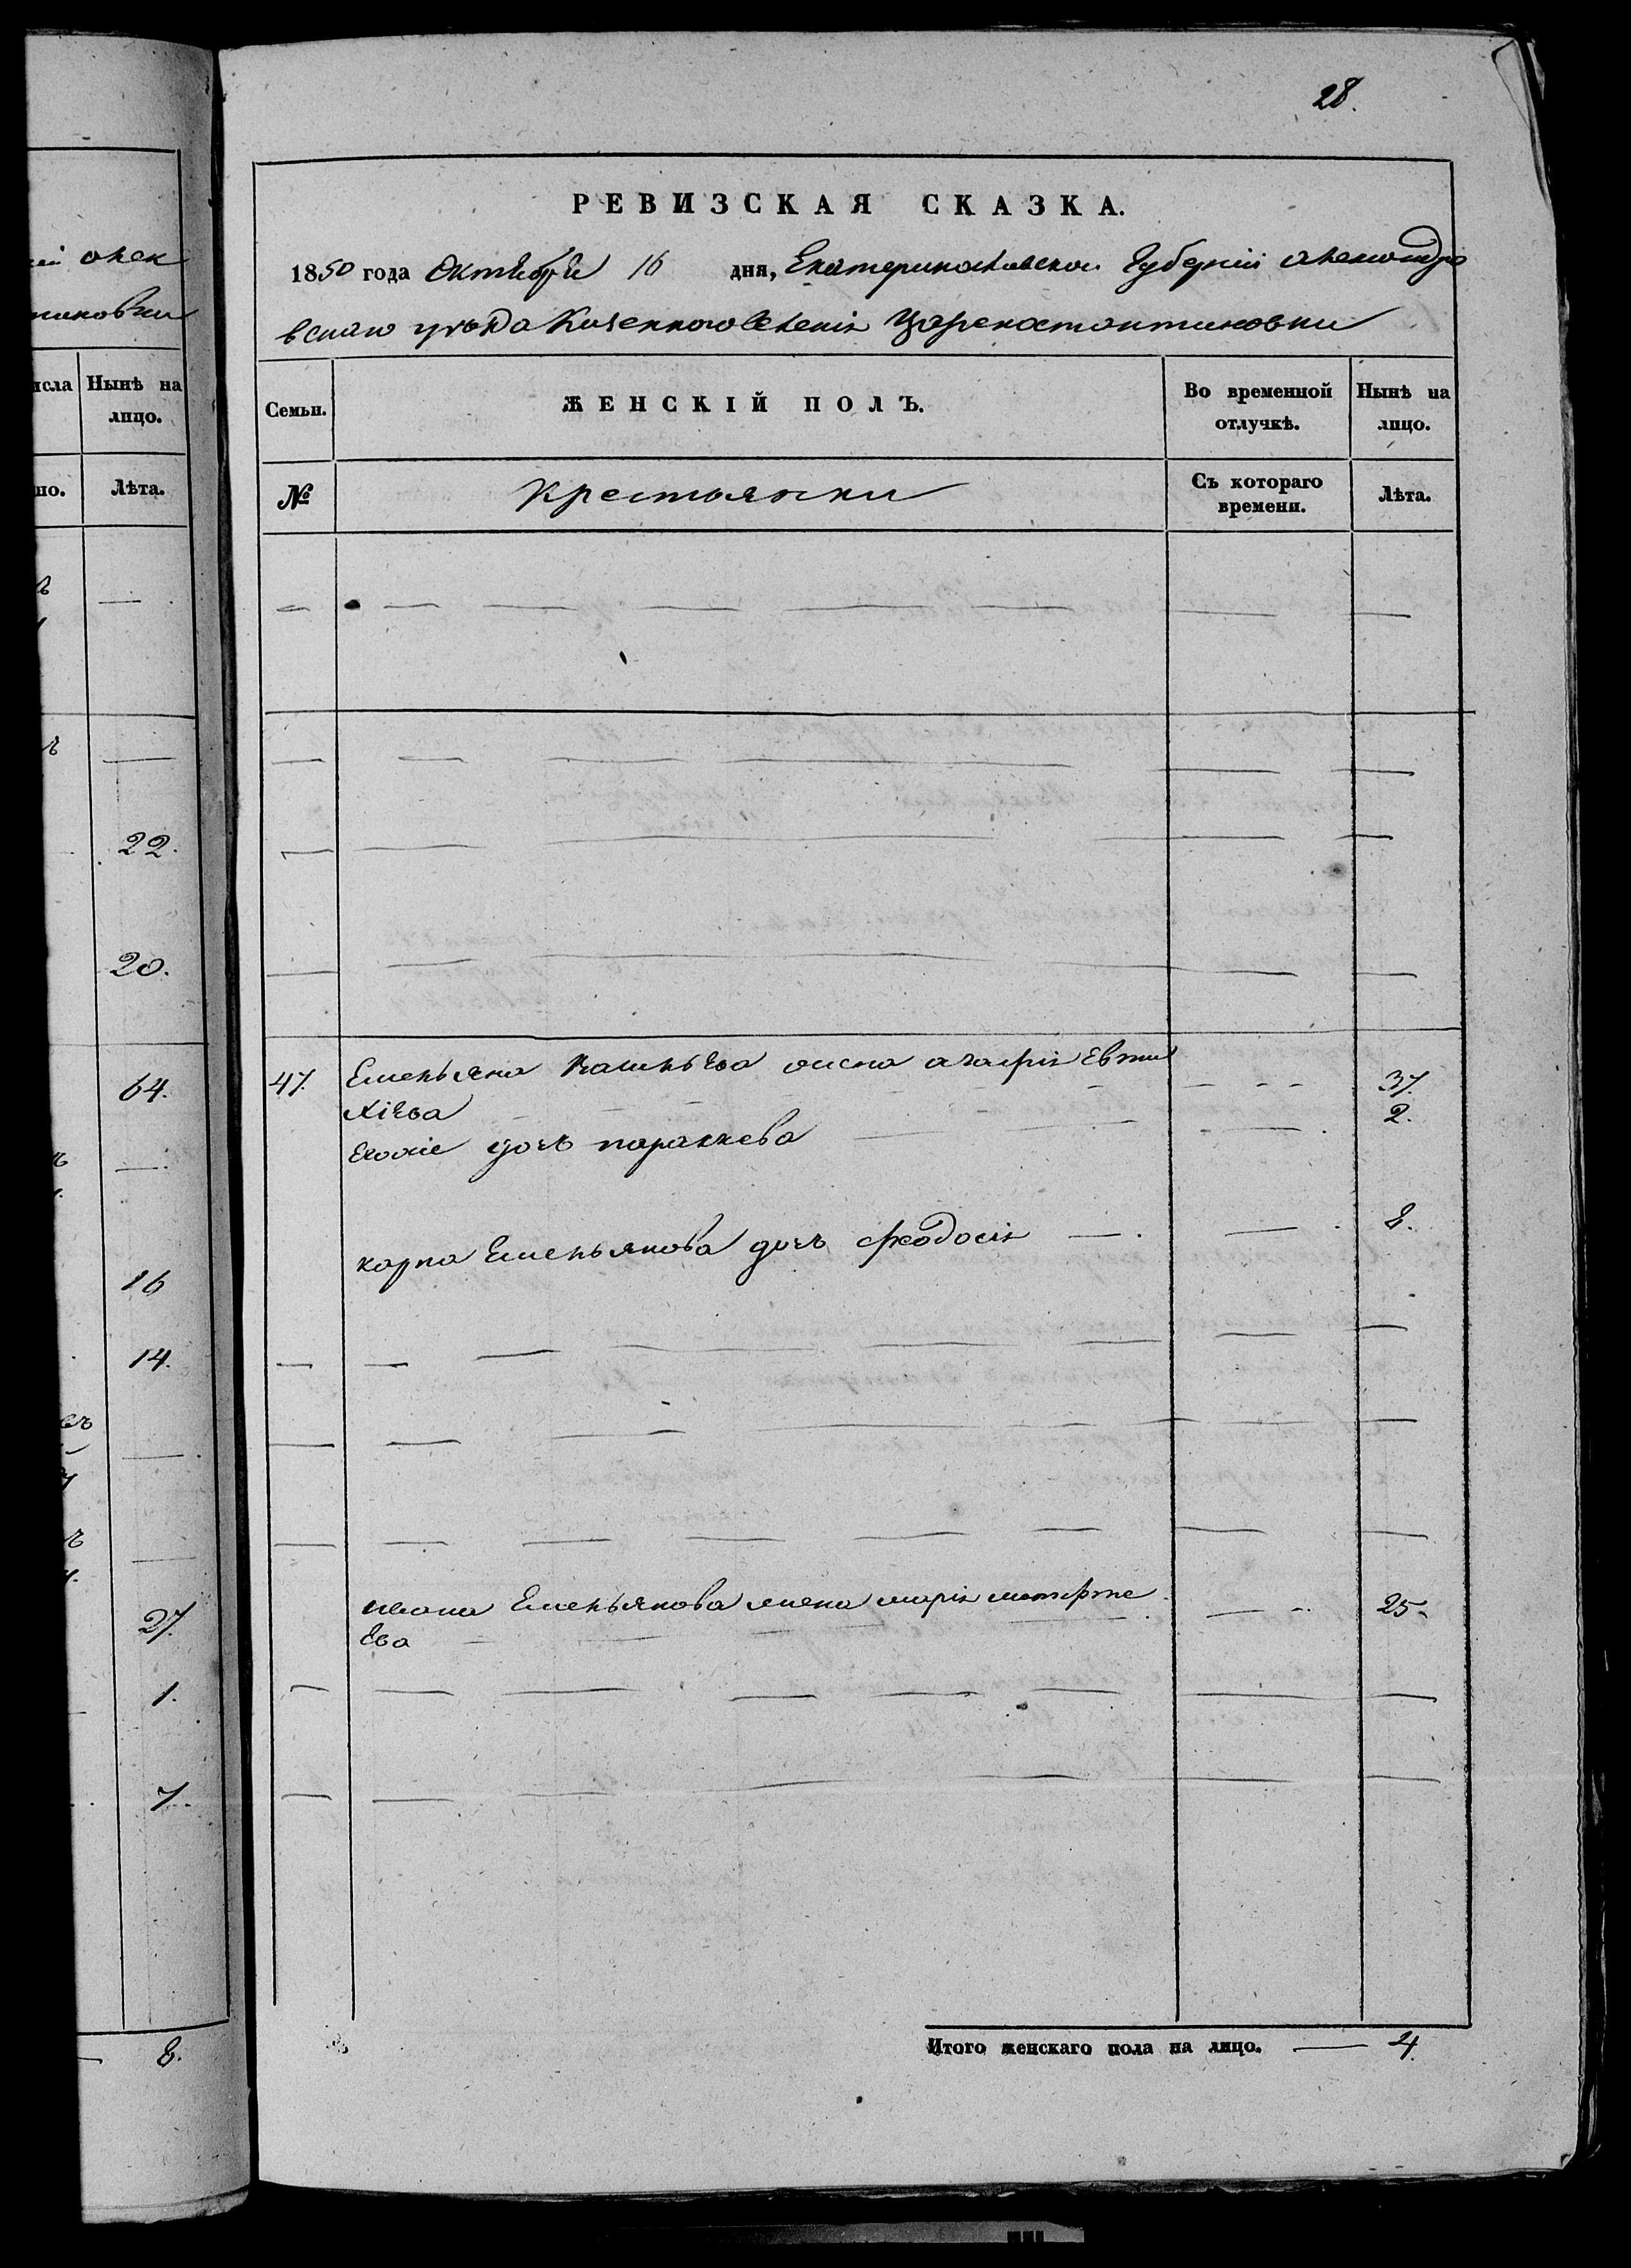 28.
РЕВИЗСКАЯ СКАЗКА.
1850 года Октября 16 дня, Екатеринославской Губерніи александро
вскаго уезда Казенного селенія Царекостантиновки
Семьи. ЖЕНСКІЙ ПОЛЪ. Во временной отлучкѣ. Нынѣ на лицо.
№ Крестьянки Съ котораго времени. Лѣта.
47. Емельяна жена агафія Евти 37.
хіева 2.
дочь параскева
карпа Емельянова дочь феодосія 8.
ивана Емельянова жена марія 25.
ева
Итого женскаго пола на лицо. 4.
Нынѣ на
лицо.
Лѣта.
22.
20.
64.
16
14.
27.
1.
7.
8.